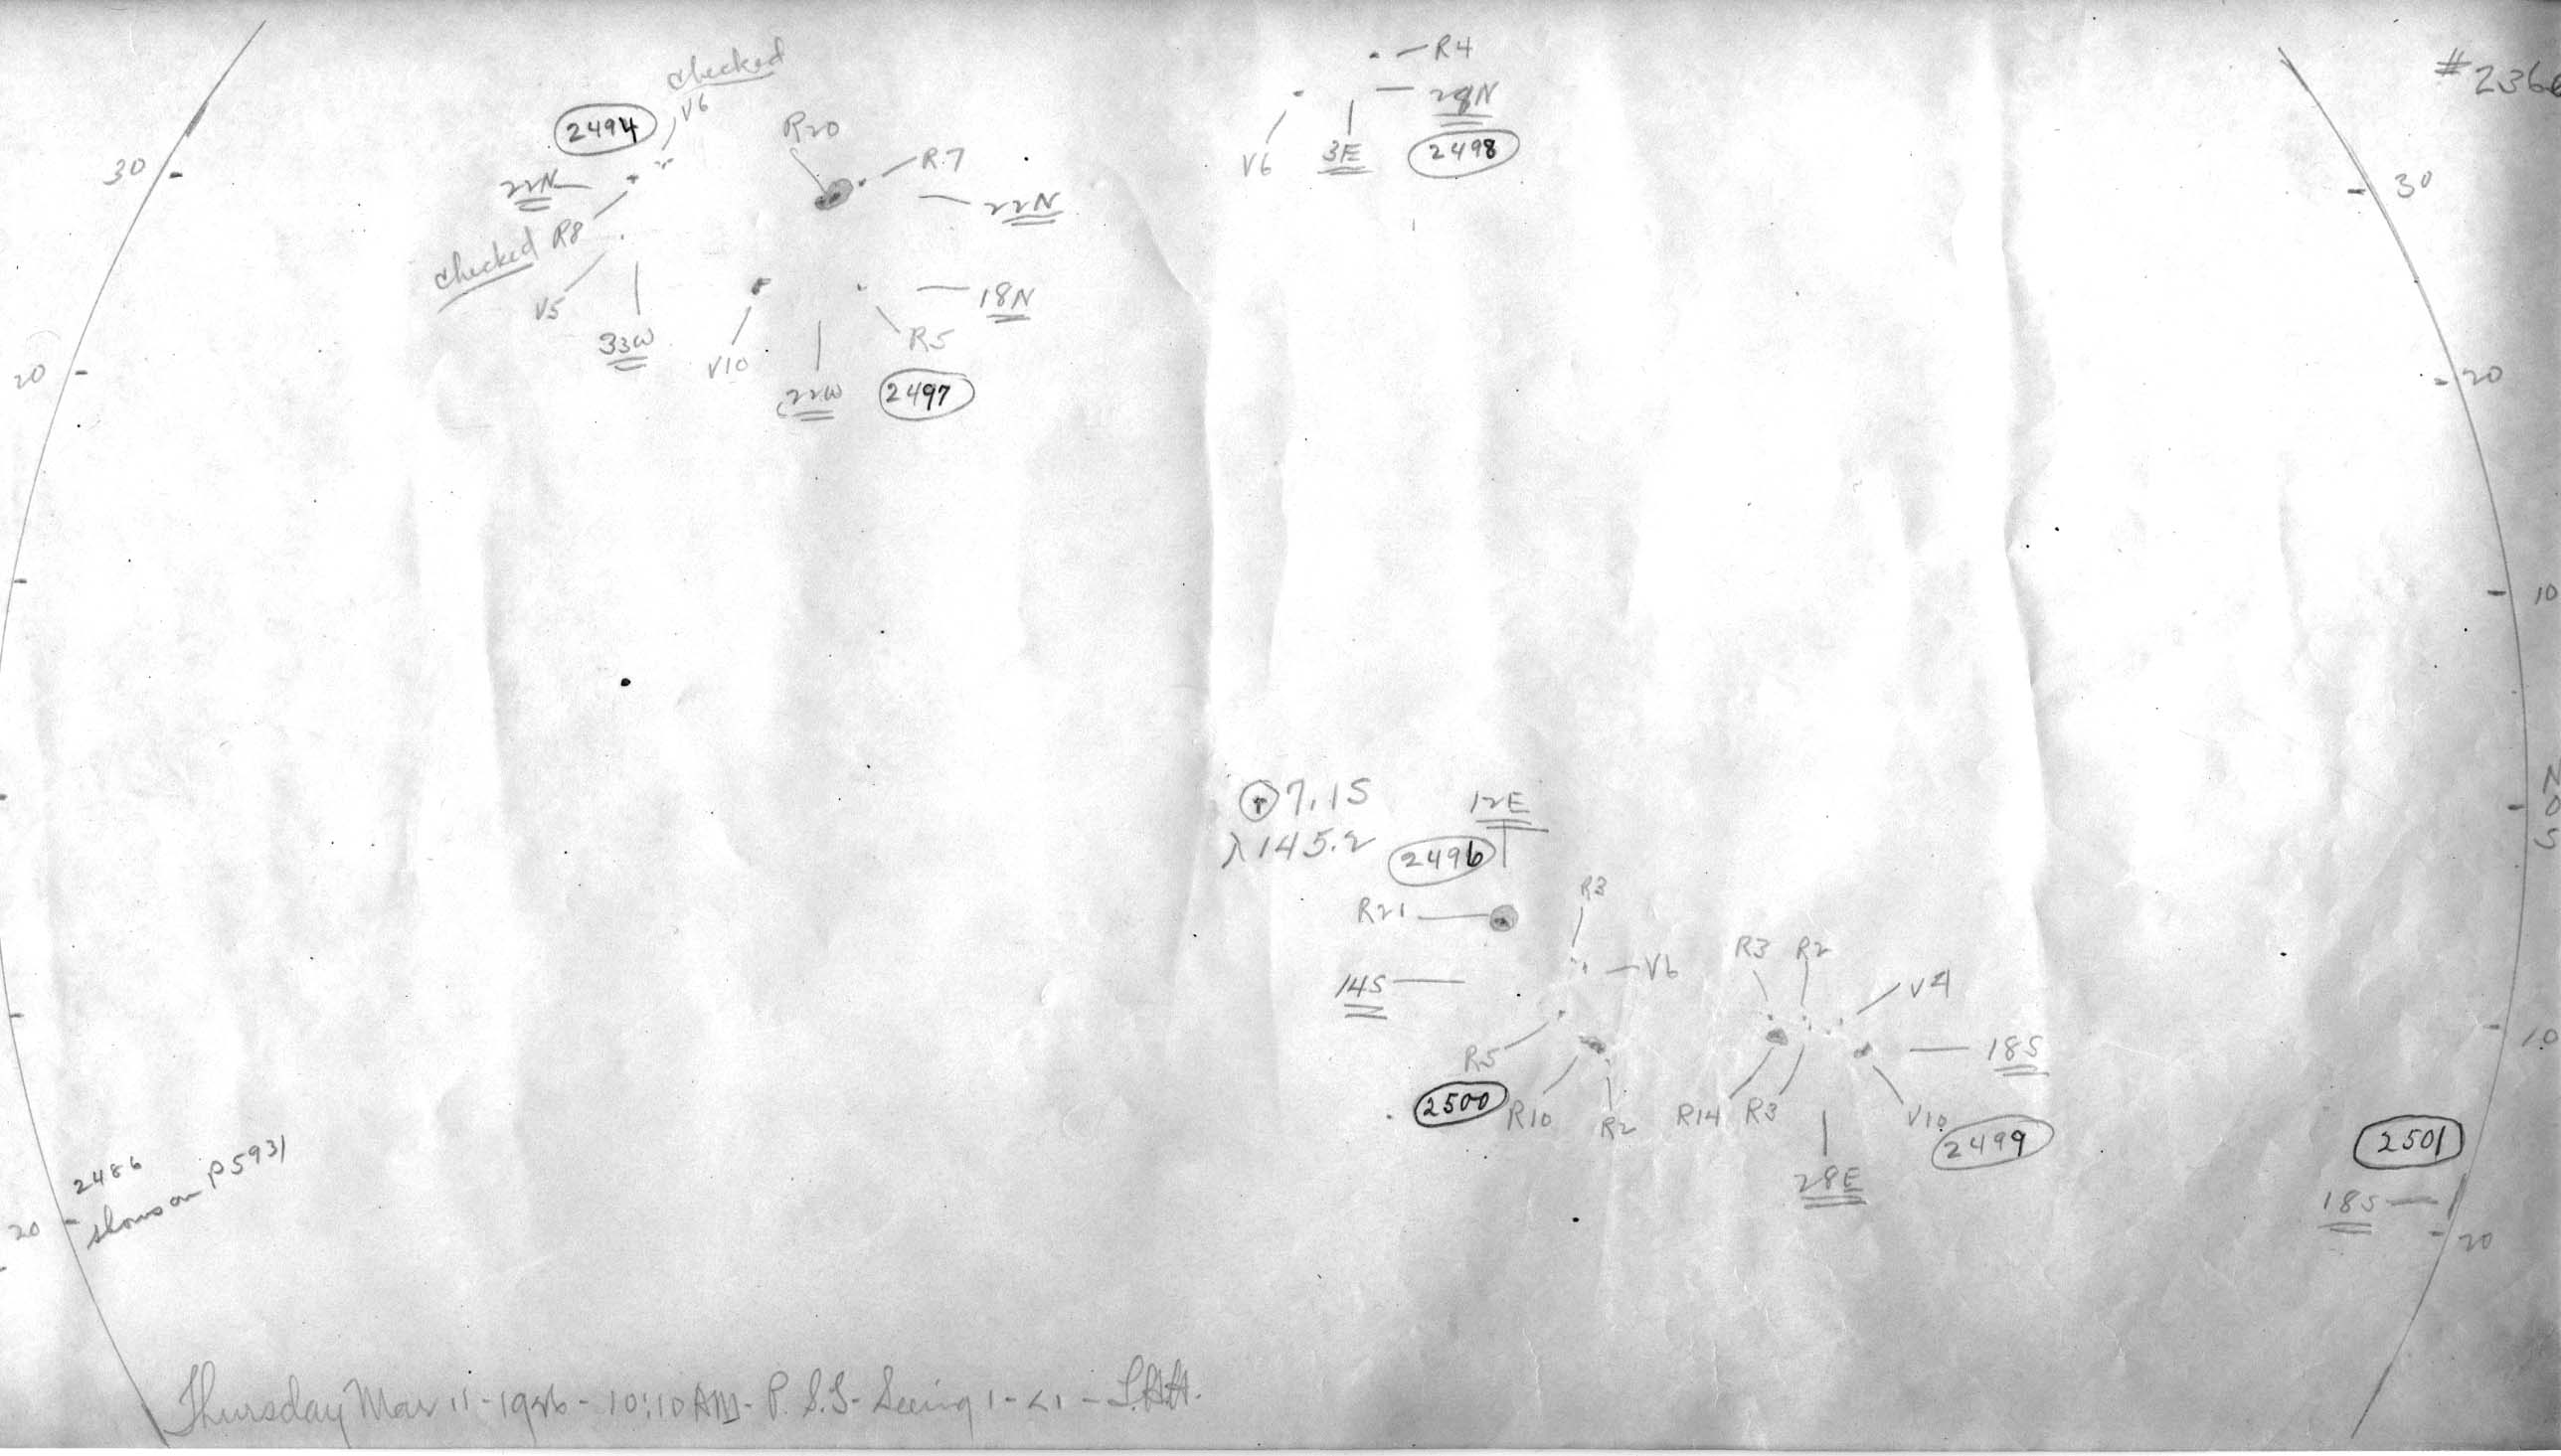 checked
V6
R4
# 236
2494
R20
R7
29N
30
22N
V6
3E
2498
30
22N
checked R8
V5
18N
33W
V10
R5
20
20
22W
2497
10
⊙ 7.1S
12E
N
0
S
λ 145.2
2496
R3
R21
V6
R3 R2
14S
V4
R5
18S
10
2500
R10
R2
R14 R3
V10
2499
2501
28E
2486
shows on P5931
18S
20
20
Thursday Mar 11 - 1926 - 10:10 AM - P. S.S - Seeing 1 - <1 -